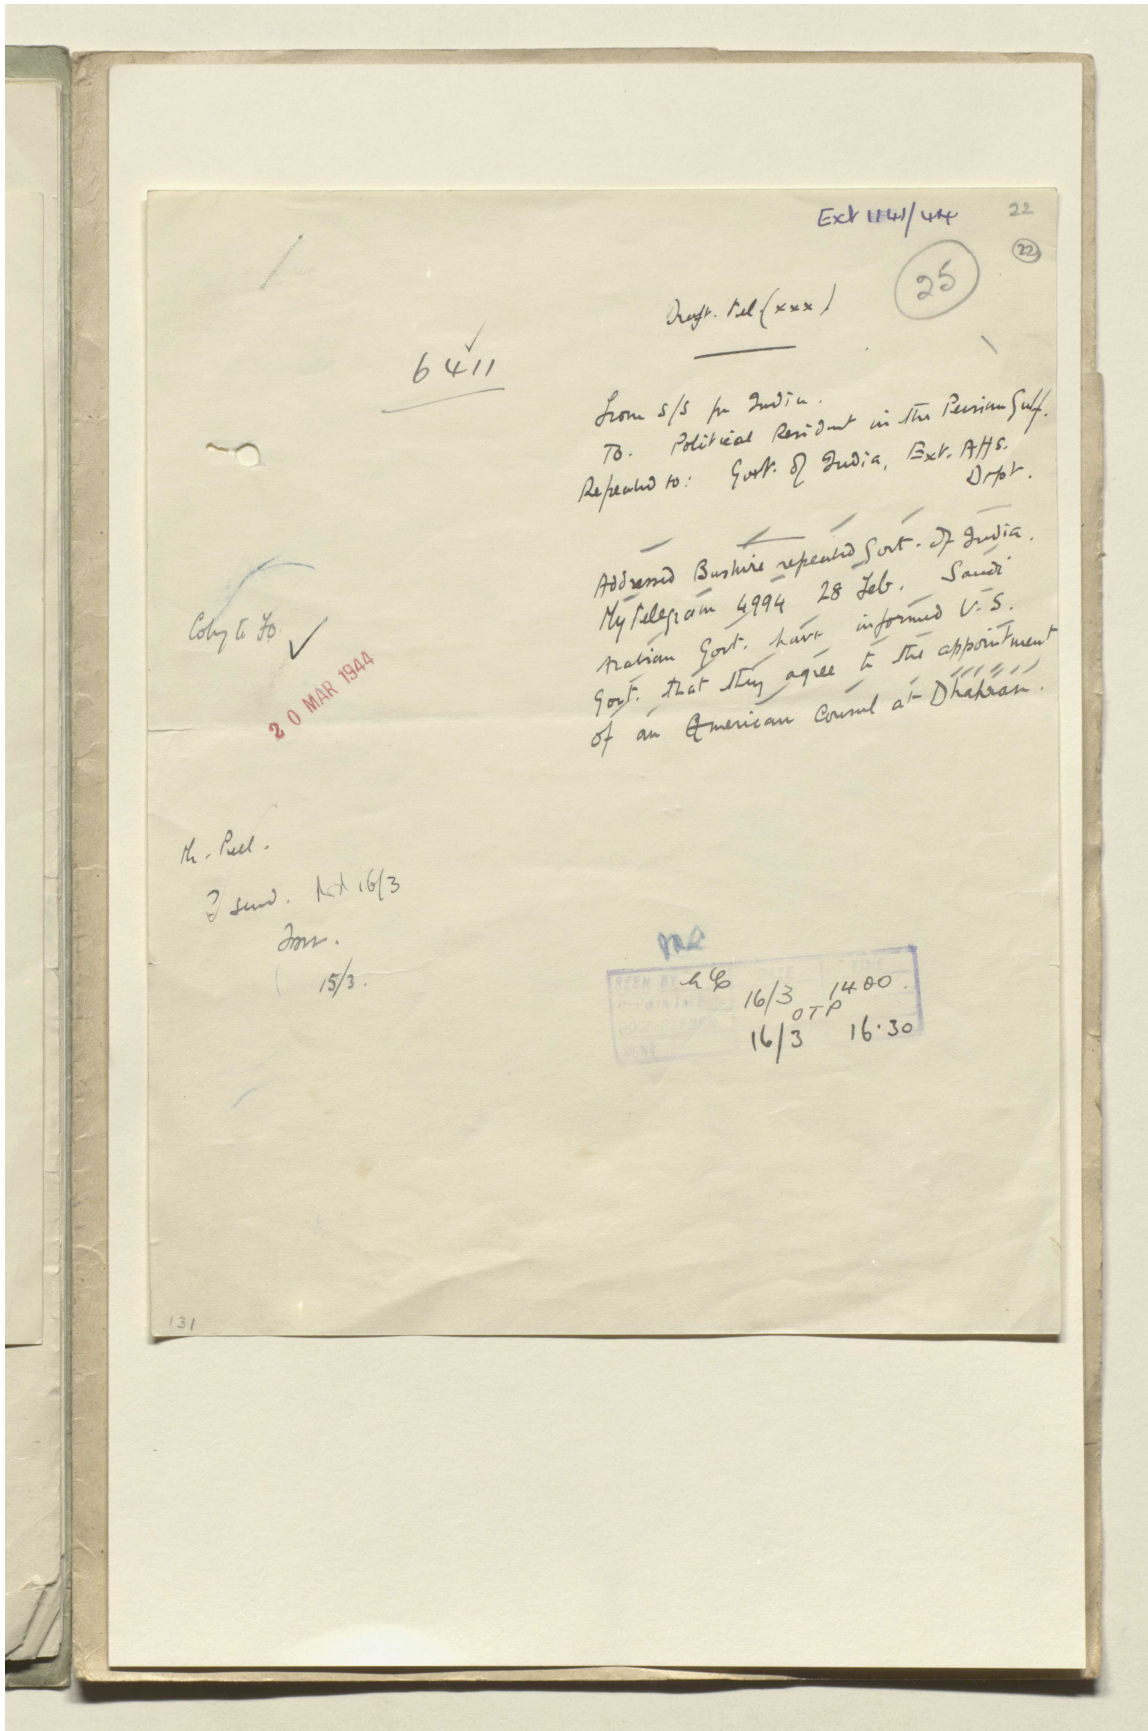 Ext 1141/44
22
22
25
Draft. Tel. (xxx)
6411
From S/S for India.
To. Political Resident in the Persian Gulf.
Repeated to: Govt. of India, Ext. Affs.
Dept.
Addressed Bushire repeated Govt. of India.
My telegram 4994 28 Feb. Saudi
Arabian Govt. have informed U.S.
Govt. that they agree to the appointment
of an American Consul at Dhahran.
Copy to FO
20 MAR 1944
Mr. Peel.
? send. 16/3
15/3.
SEEN BY
16/3 1400.
OTP
16/3 16.30
131